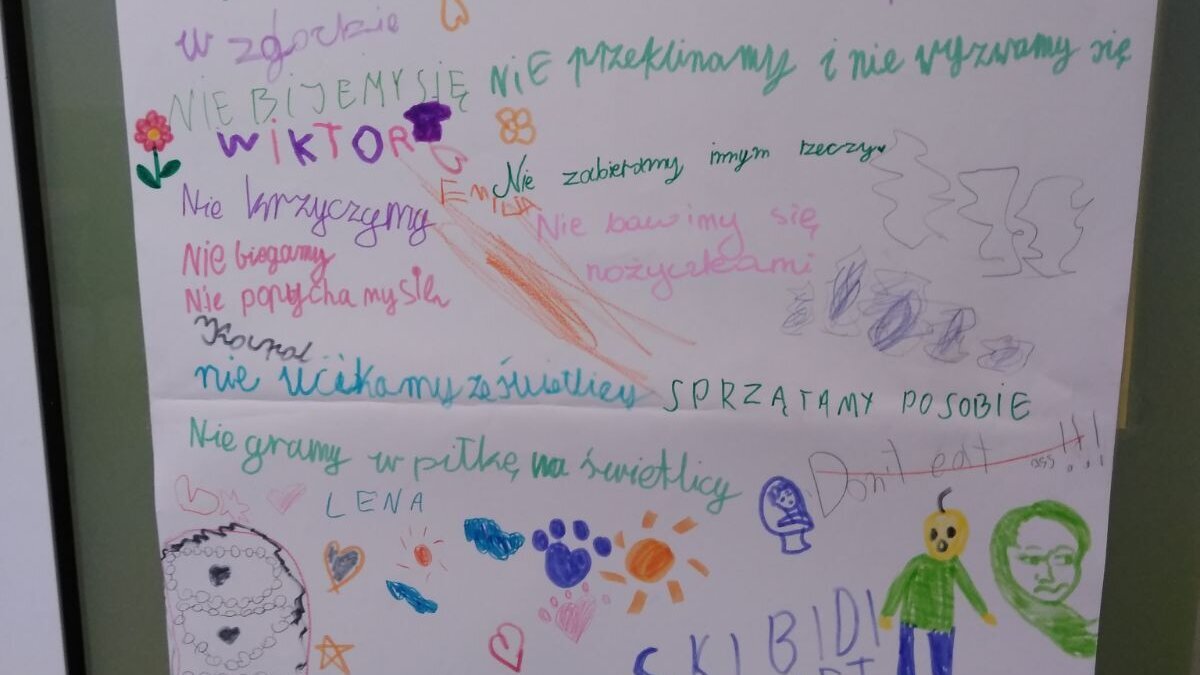 w zgodzie
NIE BIJEMY SIĘ
NiE przeklinamy i nie wyzwamy się
WiKTOR
Nie zabieramy innym rzeczy
EMILIA
Nie krzyczymy
Nie bawimy się
nożyczkami
Nie biegamy
Nie popychamy się
Karol
nie ucikamy ze świetlicy
SPRZĄTAMY PO SOBIE
Nie gramy w piłkę na świetlicy
Don't eat ass!!!
LENA
SKIBIDI